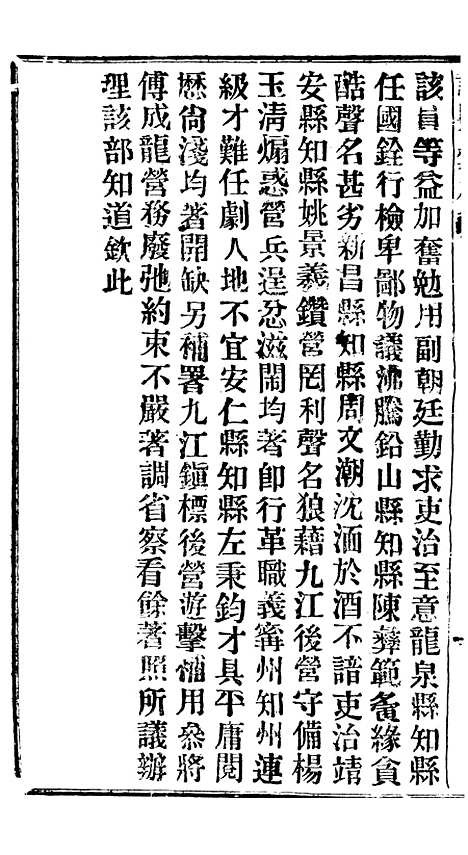 該員等益加奮勉用副朝廷勤求吏治至意龍泉縣知縣
任國銓行檢卑鄙物議沸騰鉛山縣知縣陳彝範夤緣貪
酷聲名甚劣新昌縣知縣周文潮沈湎於酒不諳吏治靖
安縣知縣姚景義鑽營罔利聲名狼藉九江後營守備楊
玉淸煽惑營兵逞忿滋鬧均著卽行革職義寗州知州連
級才難任劇人地不宜安仁縣知縣左秉鈞才具平庸閱
歷尙淺均著開缺另補署九江鎭標後營遊擊補用叅將
傅成龍營務廢弛約束不嚴著調省察看餘著照所議辦
理該部知道欽此